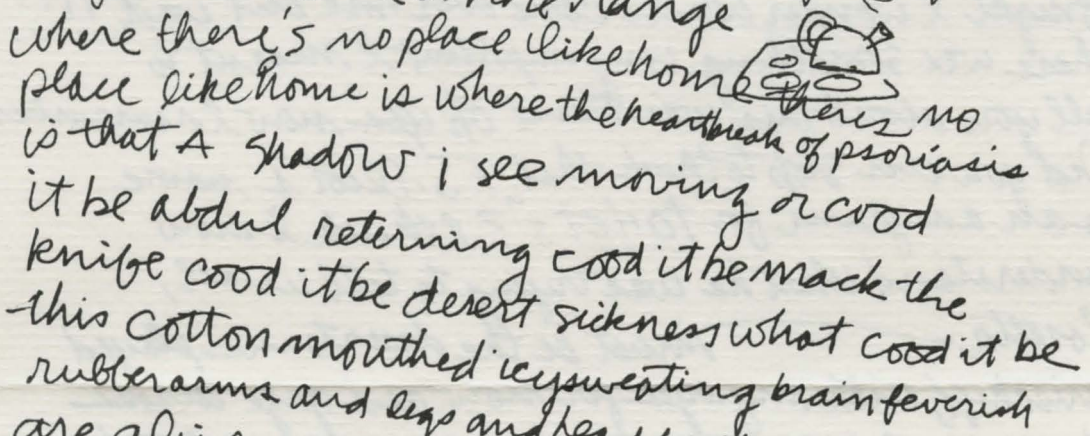 where there's no place like home theres no
place like home is where the heartbreak of psoriasis
is that A shadow i see moving or cood
it be abdul reterning cood it be mack the
knife cood it be desert sickness what cood it be
this cotton mouthed icy sweating brain feverish
rubber arms and legs and
are